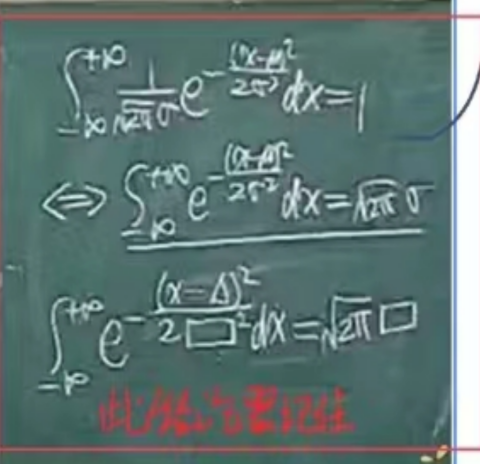 ∫_{-∞}^{+∞} \frac{1}{\sqrt{2π}σ} e^{-\frac{(x-μ)^2}{2σ^2}} dx = 1
⇔ ∫_{-∞}^{+∞} e^{-\frac{(x-μ)^2}{2σ^2}} dx = \sqrt{2π} σ
∫_{-∞}^{+∞} e^{-\frac{(x-Δ)^2}{2□^2}} dx = \sqrt{2π} □
此结论要记住